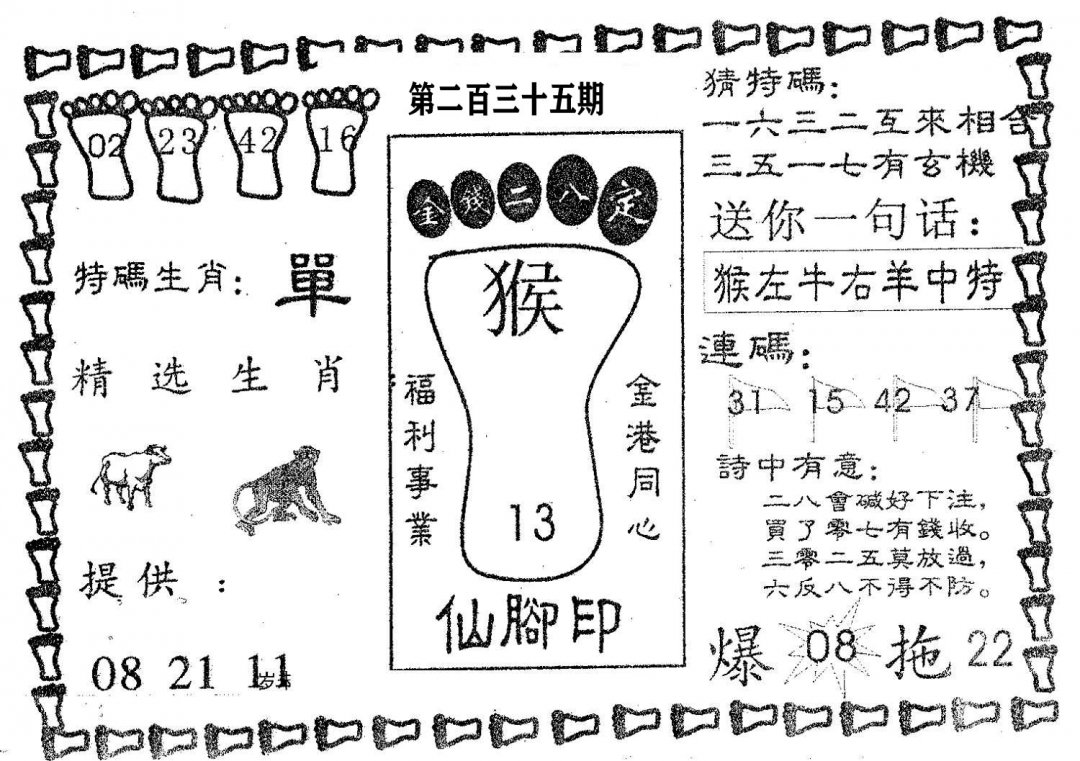 第二百三十五期
02 23 42 16
特碼生肖：單
精选生肖
提供：
08 21 11
金錢二八定
猴
福利事業
金港同心
13
仙腳印
猜特碼：
一六三二互來相合
三五一七有玄機
送你一句话：
猴左牛右羊中特
連碼：
31 15 42 37
詩中有意：
二八會碱好下注，
買了零七有錢收。
三零二五莫放過，
六反八不得不防。
爆 08 拖 22